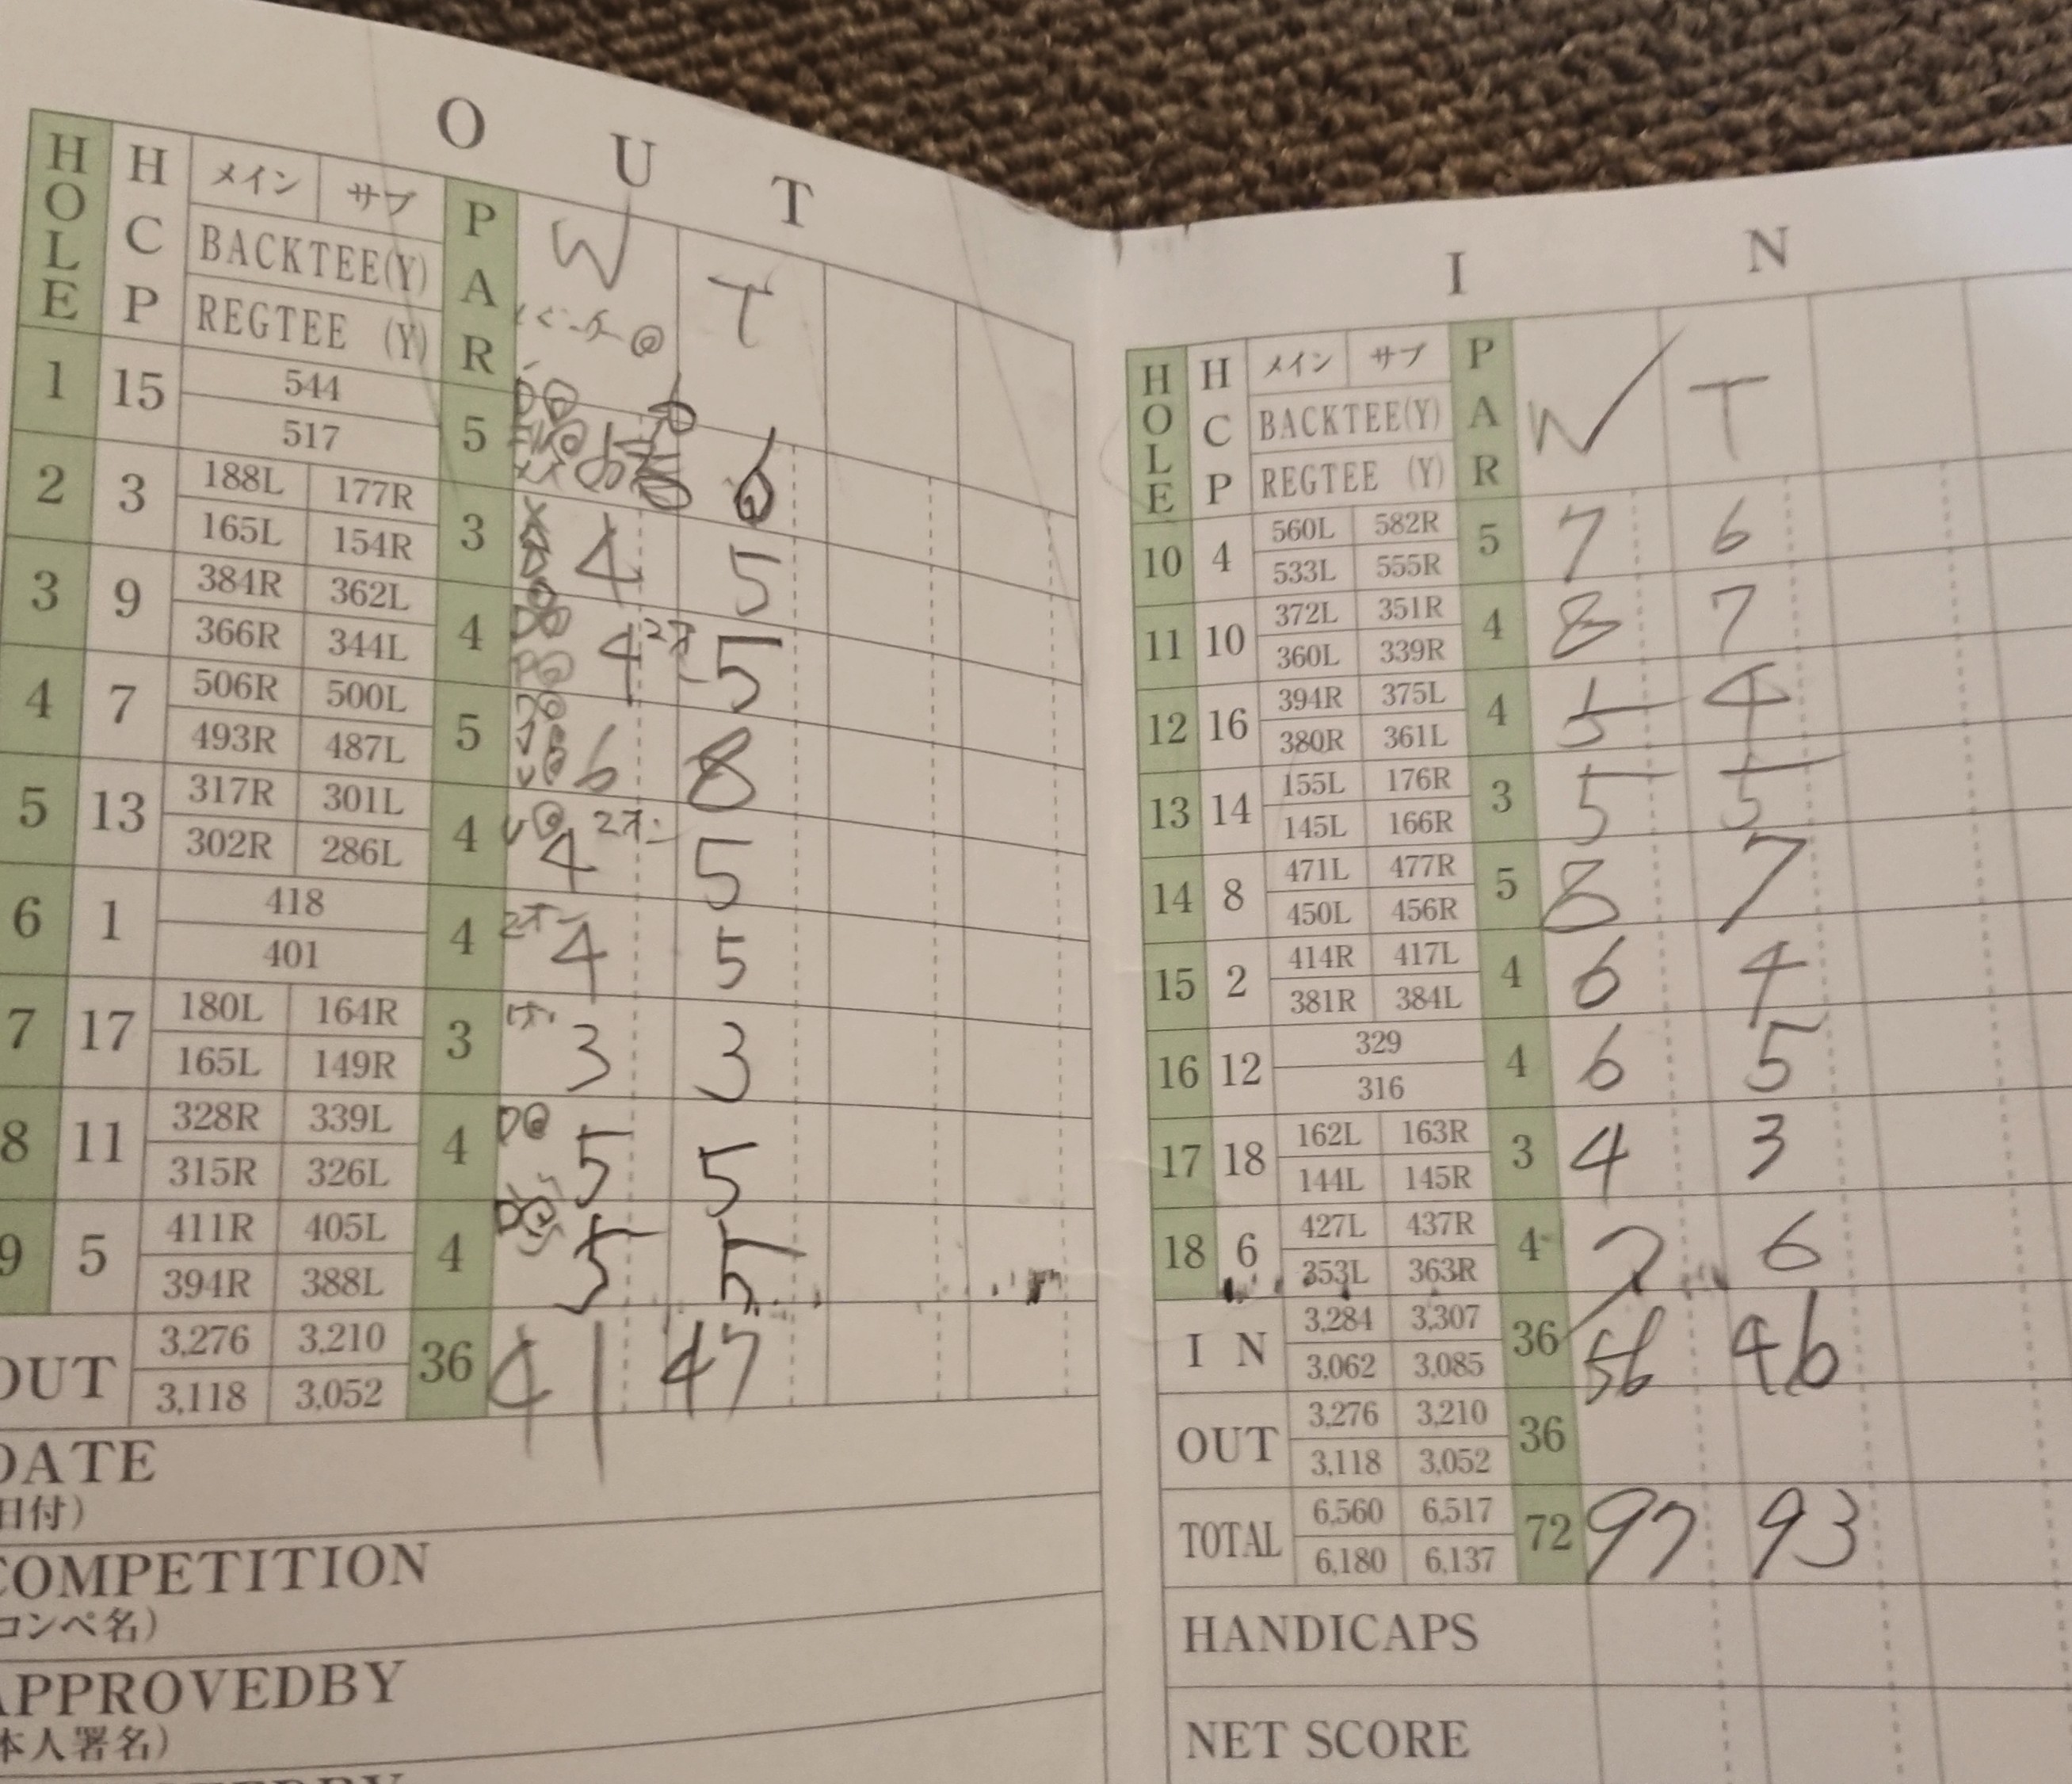 OUT
HOLE HCP メイン サブ PAR W T
BACKTEE(Y)
REGTEE (Y)
1 15 544 5 6
517
2 3 188L 177R 3 4 5
165L 154R
3 9 384R 362L 4 4 5
366R 344L
4 7 506R 500L 5 6 8
493R 487L
5 13 317R 301L 4 4 5
302R 286L
6 1 418 4 4 5
401
7 17 180L 164R 3 3 3
165L 149R
8 11 328R 339L 4 5 5
315R 326L
9 5 411R 405L 4 5 5
394R 388L
OUT 3,276 3,210 36 41 47
3,118 3,052
DATE
日付)
COMPETITION
コンペ名)
APPROVEDBY
本人署名)
IN
HOLE HCP メイン サブ PAR W T
BACKTEE(Y)
REGTEE (Y)
10 4 560L 582R 5 7 6
533L 555R
11 10 372L 351R 4 8 7
360L 339R
12 16 394R 375L 4 5 4
380R 361L
13 14 155L 176R 3 5 5
145L 166R
14 8 471L 477R 5 8 7
450L 456R
15 2 414R 417L 4 6 4
381R 384L
16 12 329 4 6 5
316
17 18 162L 163R 3 4 3
144L 145R
18 6 427L 437R 4 7 6
353L 363R
IN 3,284 3,307 36 56 46
3,062 3,085
OUT 3,276 3,210 36
3,118 3,052
TOTAL 6,560 6,517 72 97 93
6,180 6,137
HANDICAPS
NET SCORE